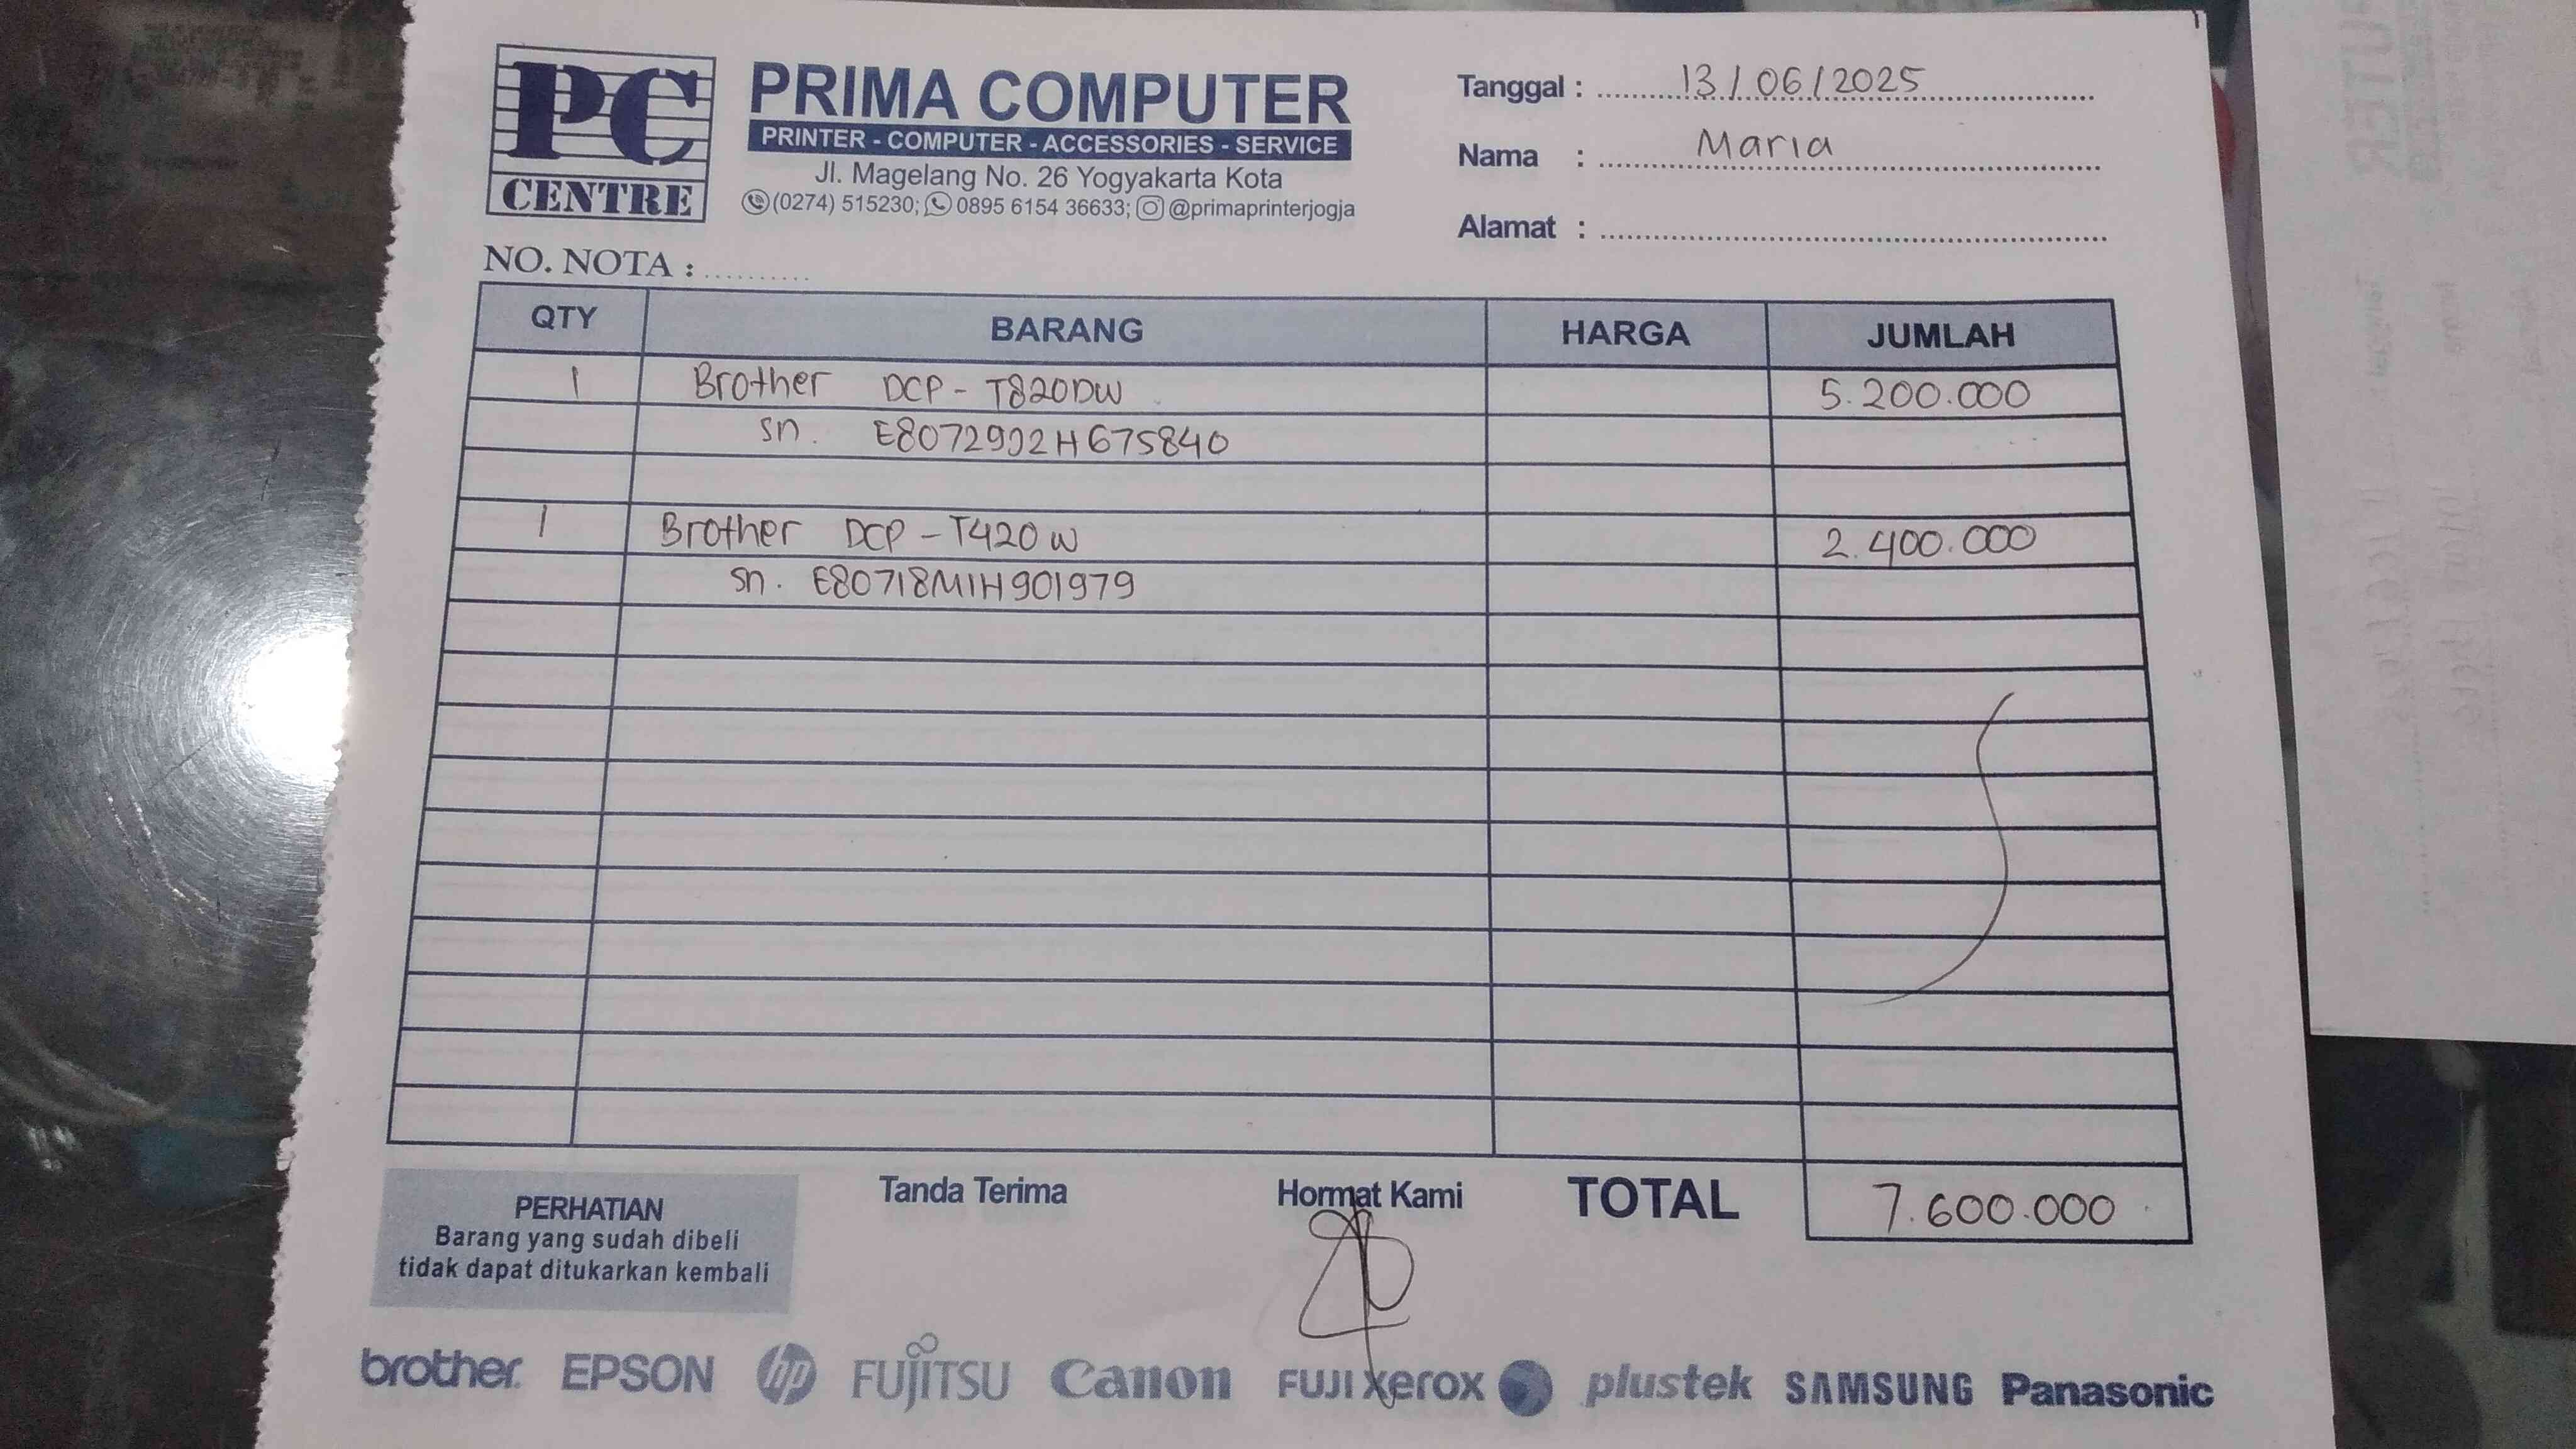 PC
CENTRE
PRIMA COMPUTER
PRINTER - COMPUTER - ACCESSORIES - SERVICE
Jl. Magelang No. 26 Yogyakarta Kota
(0274) 515230; 0895 6154 36633; @primaprinterjogja
Tanggal : 13/06/2025
Nama : Maria
Alamat :
NO. NOTA :
QTY BARANG HARGA JUMLAH
1 Brother DCP - T820DW 5.200.000
sn. E8072992H675840
1 Brother DCP - T420W 2.400.000
sn. E80718M1H901979
PERHATIAN
Barang yang sudah dibeli
tidak dapat ditukarkan kembali
Tanda Terima
Hormat Kami
TOTAL 7.600.000
brother EPSON hp FUJITSU Canon FUJI xerox plustek SAMSUNG Panasonic